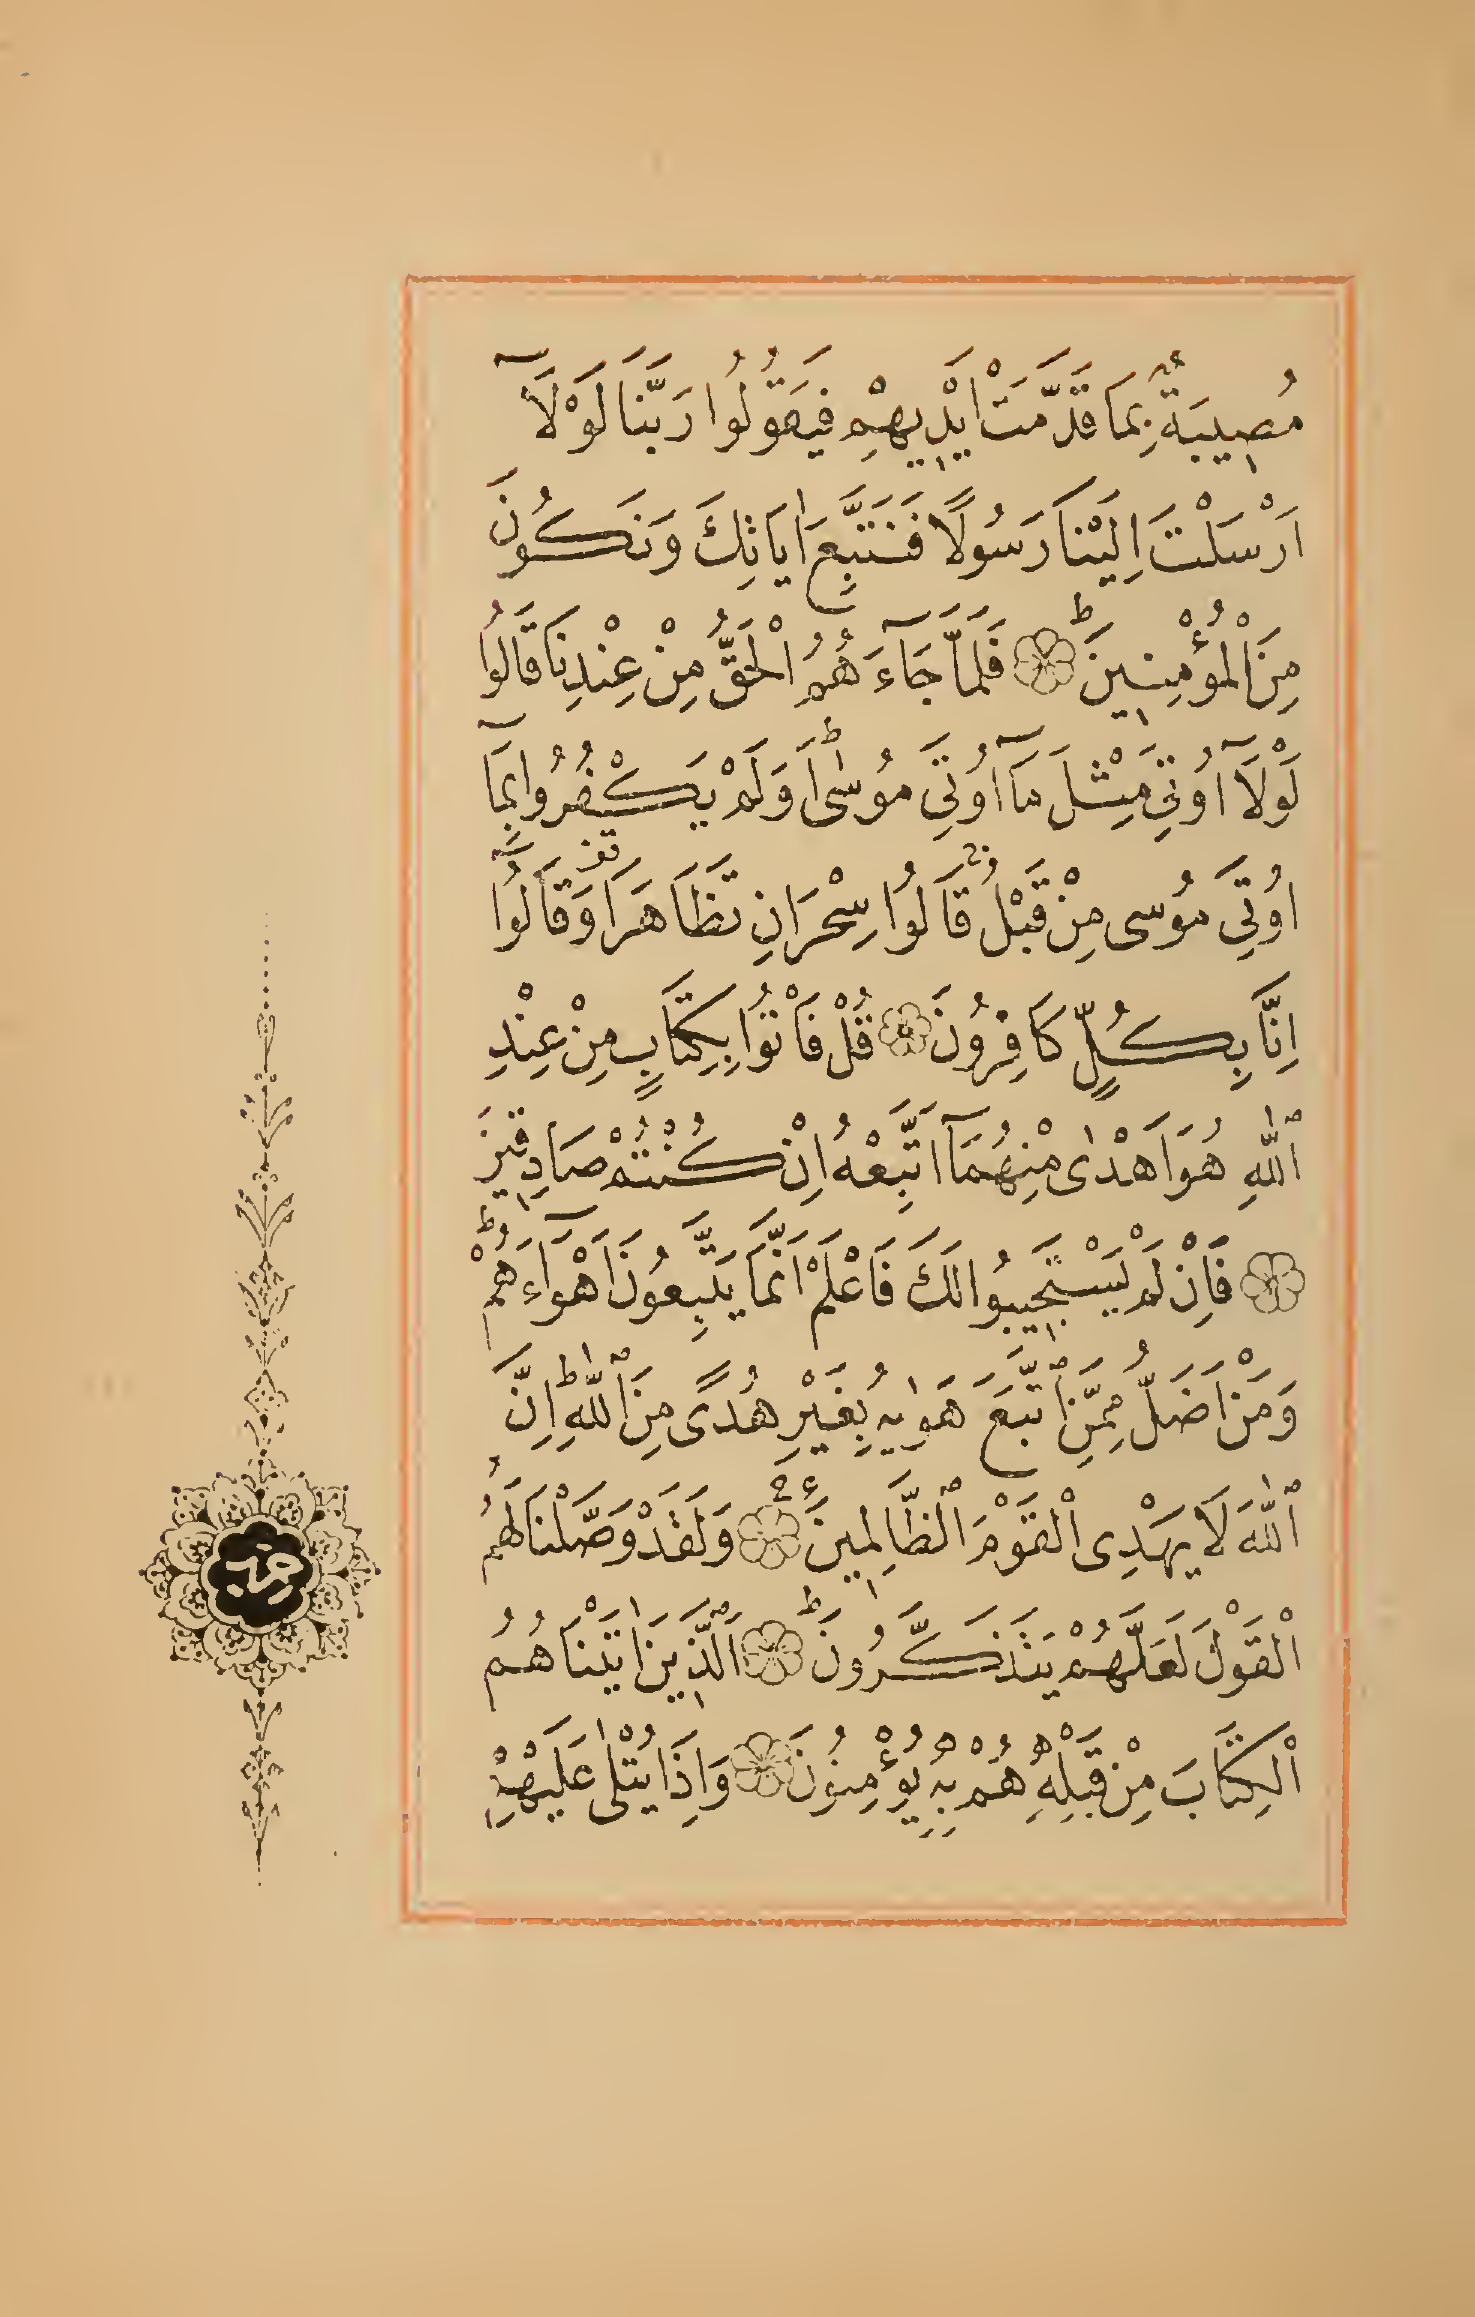 مُصِيبَةٌ بِمَا قَدَّمَتْ اَيْدِيهِمْ فَيَقُولُوا رَبَّنَا لَوْلَٓا
اَرْسَلْتَ اِلَيْنَا رَسُولًا فَنَتَّبِعَ اٰيَاتِكَ وَنَكُونَ
مِنَ الْمُؤْمِنِينَ ط فَلَمَّا جَٓاءَهُمُ الْحَقُّ مِنْ عِنْدِنَا قَالُوا
لَوْلَٓا اُوتِيَ مِثْلَ مَٓا اُوتِيَ مُوسٰى ط اَوَلَمْ يَكْفُرُوا بِمَٓا
اُوتِيَ مُوسٰى مِنْ قَبْلُ قَالُوا سِحْرَانِ تَظَاهَرَا وَقَالُٓوا
اِنَّا بِكُلٍّ كَافِرُونَ قُلْ فَأْتُوا بِكِتَابٍ مِنْ عِنْدِ
اللّٰهِ هُوَ اَهْدٰى مِنْهُمَٓا اَتَّبِعْهُ اِنْ كُنْتُمْ صَادِقِينَ
فَاِنْ لَمْ يَسْتَجِيبُوا لَكَ فَاعْلَمْ اَنَّمَا يَتَّبِعُونَ اَهْوَٓاءَهُمْ ط
وَمَنْ اَضَلُّ مِمَّنِ اتَّبَعَ هَوٰيهُ بِغَيْرِ هُدًى مِنَ اللّٰهِ ط اِنَّ
اللّٰهَ لَا يَهْدِى الْقَوْمَ الظَّالِمِينَ ع وَلَقَدْ وَصَّلْنَا لَهُمُ
الْقَوْلَ لَعَلَّهُمْ يَتَذَكَّرُونَ ط اَلَّذِينَ اٰتَيْنَاهُمُ
الْكِتَابَ مِنْ قَبْلِهِ هُمْ بِهِ يُؤْمِنُونَ وَاِذَا يُتْلٰى عَلَيْهِمْ
حزب